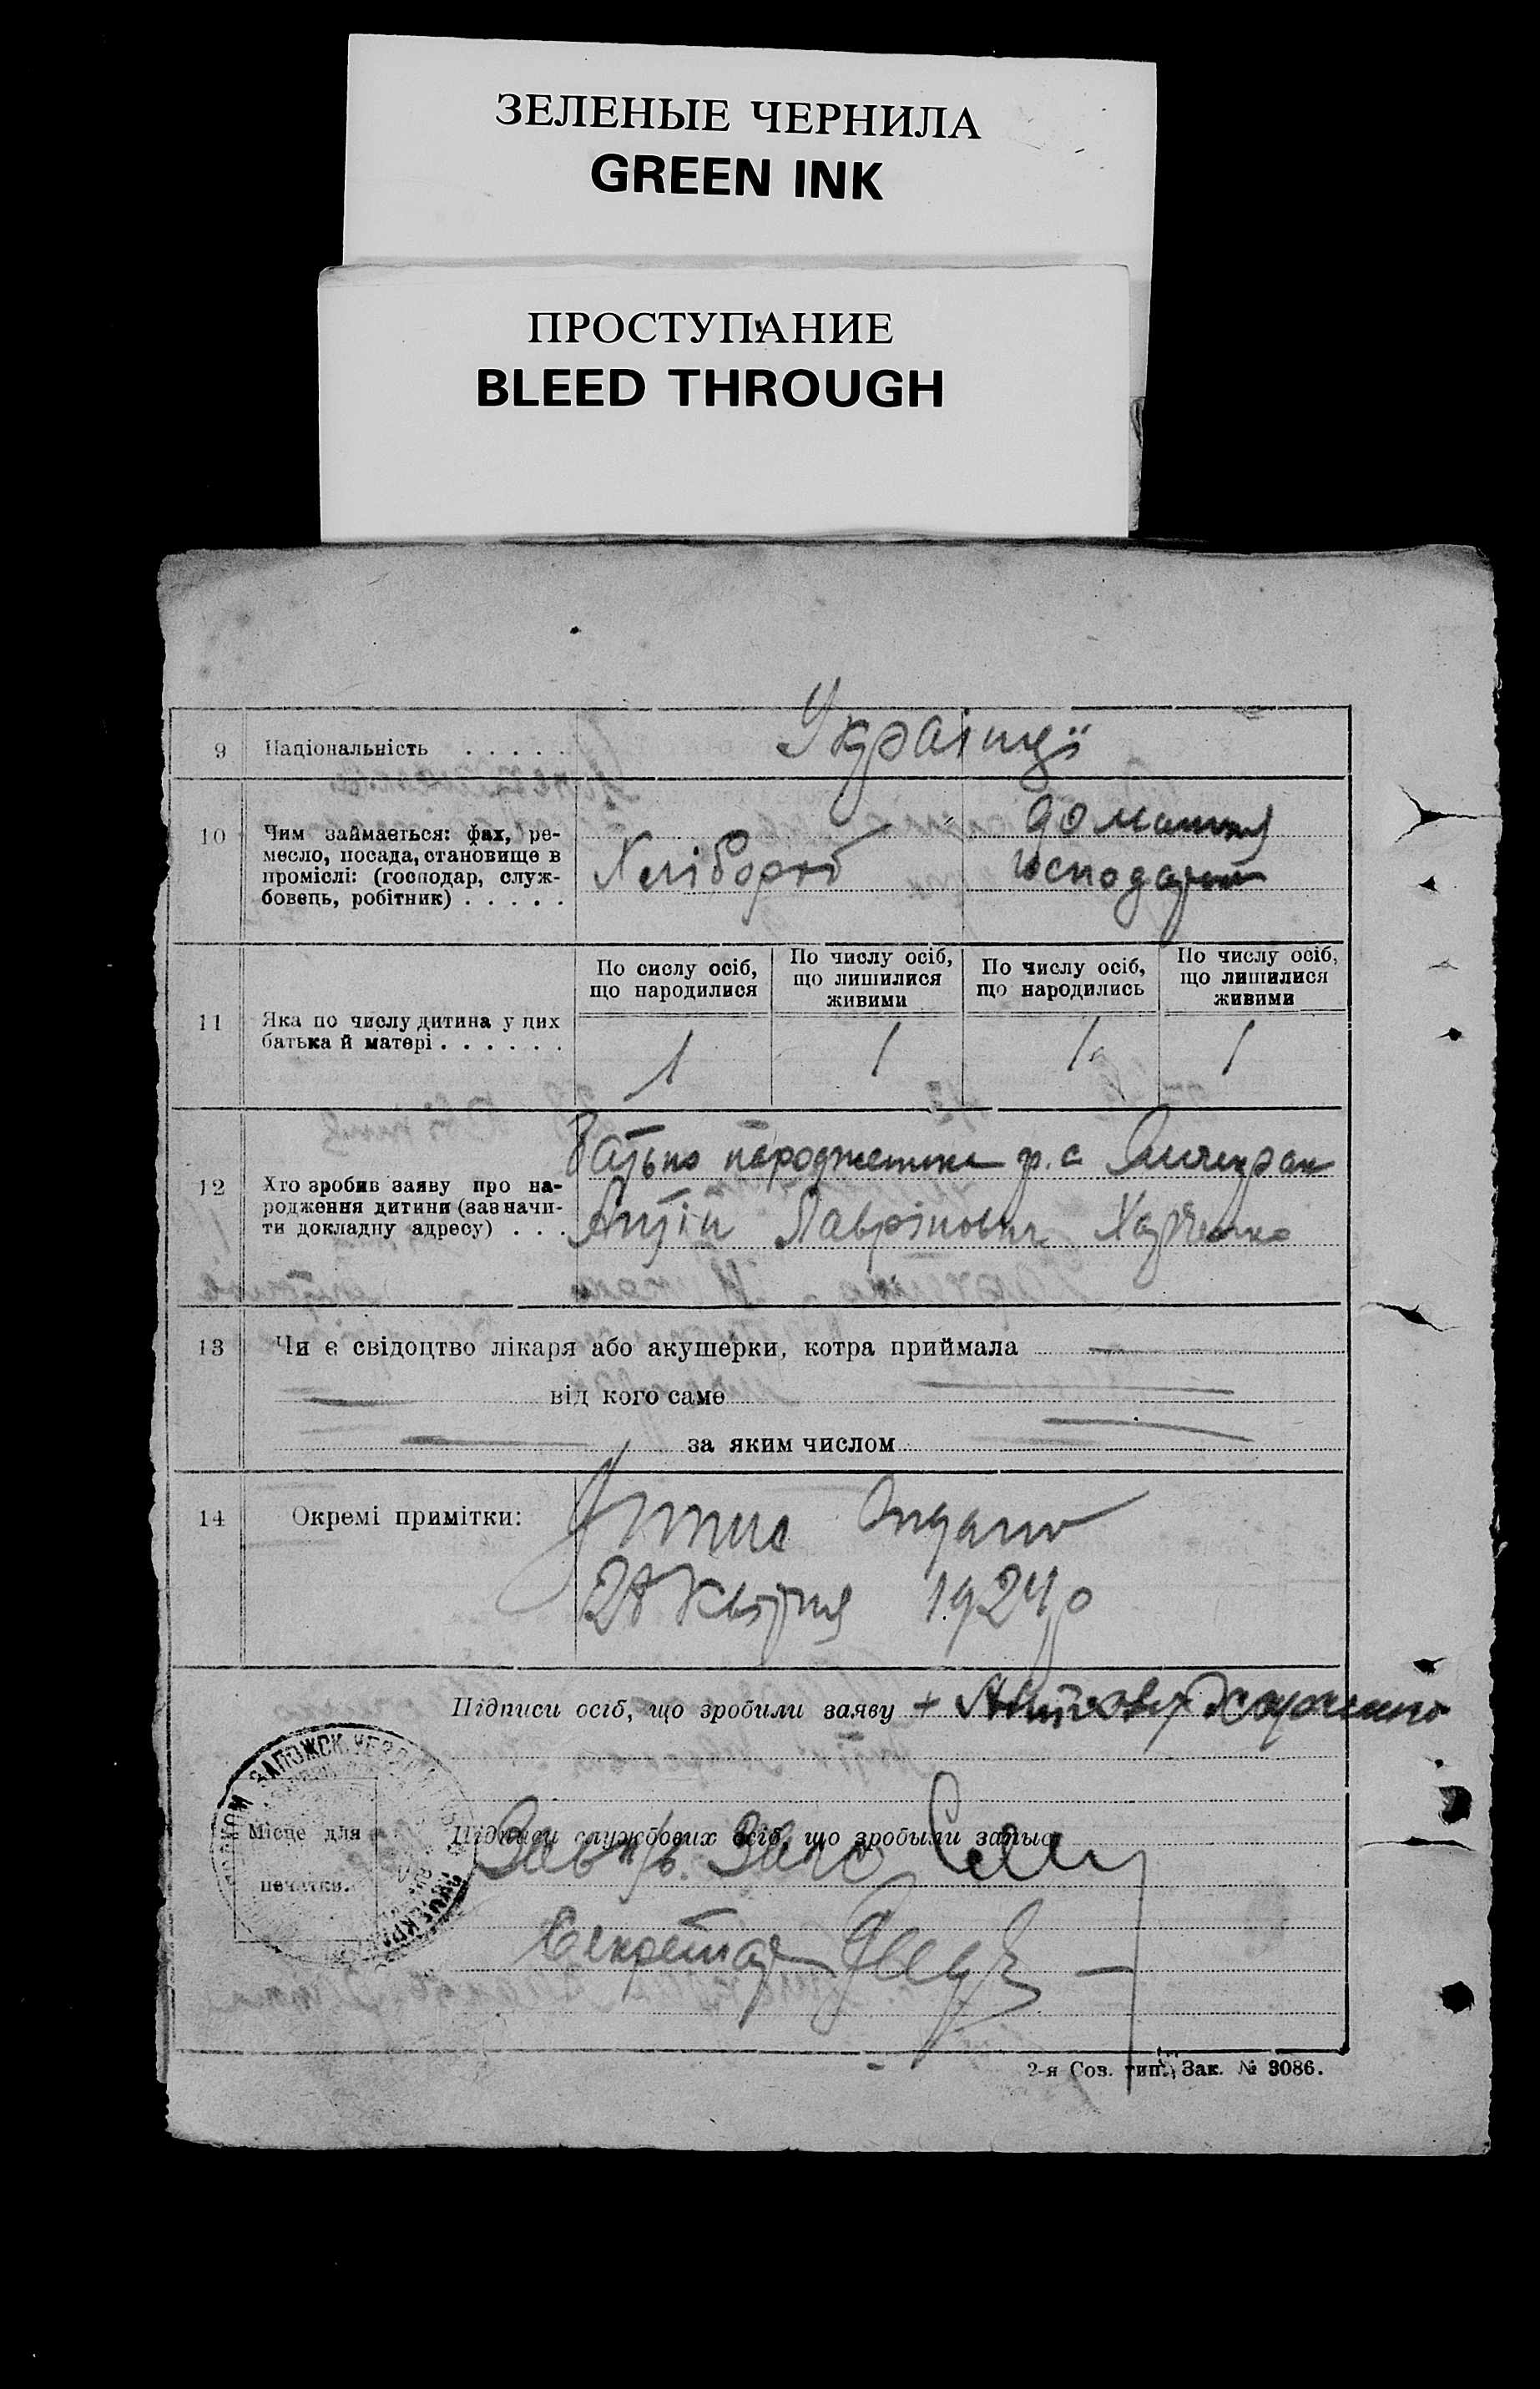 ЗЕЛЕНЫЕ ЧЕРНИЛА
GREEN INK
ПРОСТУПАНИЕ
BLEED THROUGH
9 Національність . . . . . Українці
10 Чим займається: фах, ре-
месло, посада, становище в
проміслі: (господар, служ-
бовець, робітник) . . . . .
Хлібороб
домашня
господарка
По сислу осіб,
що народилися
По числу осіб,
що лишилися
живими
По числу осіб,
що народились
По числу осіб,
що лишилися
живими
11 Яка по числу дитина у цих
батька й матері . . . . . .
1 1 1 1
12 Хто зробив заяву про на-
родження дитини (зазначи-
ти докладну адресу) . . .
Батько народженика гр. с.
Лаврінович Харченко
13 Чи є свідоцтво лікаря або акушерки, котра приймала —
від кого саме
за яким числом
14 Окремі примітки:
28 Квітня 1924 р
Підписи осіб, що зробили заяву + Харченко
Місце для
печатки.
Підписи службових осіб, що зробыли запыс
Секретар
2-я Сов. тип. Зак. № 3086.